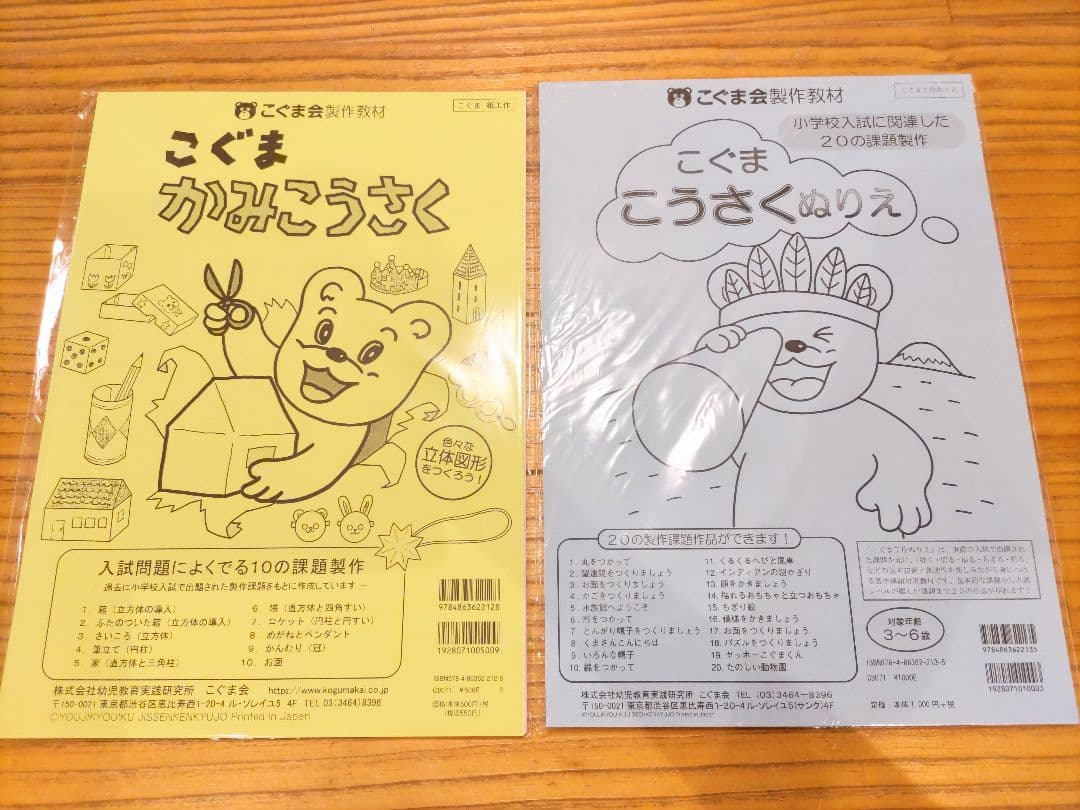 こぐま会製作教材
こぐま 紙工作
こぐま
かみこうさく
色々な
立体図形
をつくろう！
入試問題によくでる10の課題製作
過去に小学校入試で出題された製作課題をもとに作成しています
1. 箱（立方体の導入）
2. ふたのついた箱（立方体の導入）
3. さいころ（立方体）
4. 筆立て（円柱）
5. 家（直方体と三角柱）
6 塔（直方体と四角すい）
7. ロケット（円柱と円すい）
8 めがねとペンダント
9. かんむり（冠）
10. お面
9784863622128
1928071005009
株式会社幼児教育実践研究所 こぐま会 https://www.kogumakai.co.jp
〒150-0021 東京都渋谷区恵比寿西1-20-4 ル・ソレイユ5 4F TEL (03)3464)8396
©YOUJIKYOUIKU JISSENKENKYUJO Printed in Japan
ISBN978-4-86362-212-8
C8071 ¥500E
価格:本体500円+税
(税込550円)
こぐま会製作教材
こぐま工作ぬりえ
小学校入試に関連した
20の課題製作
こぐま
こうさくぬりえ
20の製作課題作品ができます！
1. 丸をつかって
2. 望遠鏡をつくりましょう
3. お面をつくりましょう
4. かごをつくりましょう
5. 水族館へようこそ
6. 形をつかって
7. とんがり帽子をつくりましょう
8. くまさんこんにちは
9. いろんな帽子
10. 線をつかって
11. くるくるへびと風車
12. インディアンの羽かざり
13. 顔をかきましょう
14. 揺れるおもちゃと立つおもちゃ
15. ちぎり絵
16. 模様をかきましょう
17. お面をつくりましょう
18. パズルをつくりましょう
19. ヤッホーこぐまくん
20. たのしい動物園
対象年齢
3～6歳
ISBN978-4-86362-213-5
C8071 ¥1000E
9784863622135
1928071010003
株式会社幼児教育実践研究所 こぐま会 TEL (03)3464-8396
〒150-0021 東京都渋谷区恵比寿西1-20-4 ル・ソレイユ5(サンク)4F
©YOUJIKYOUIKU JISSENKENKYUJO Printed in Japan
定価：本体1,000円+税